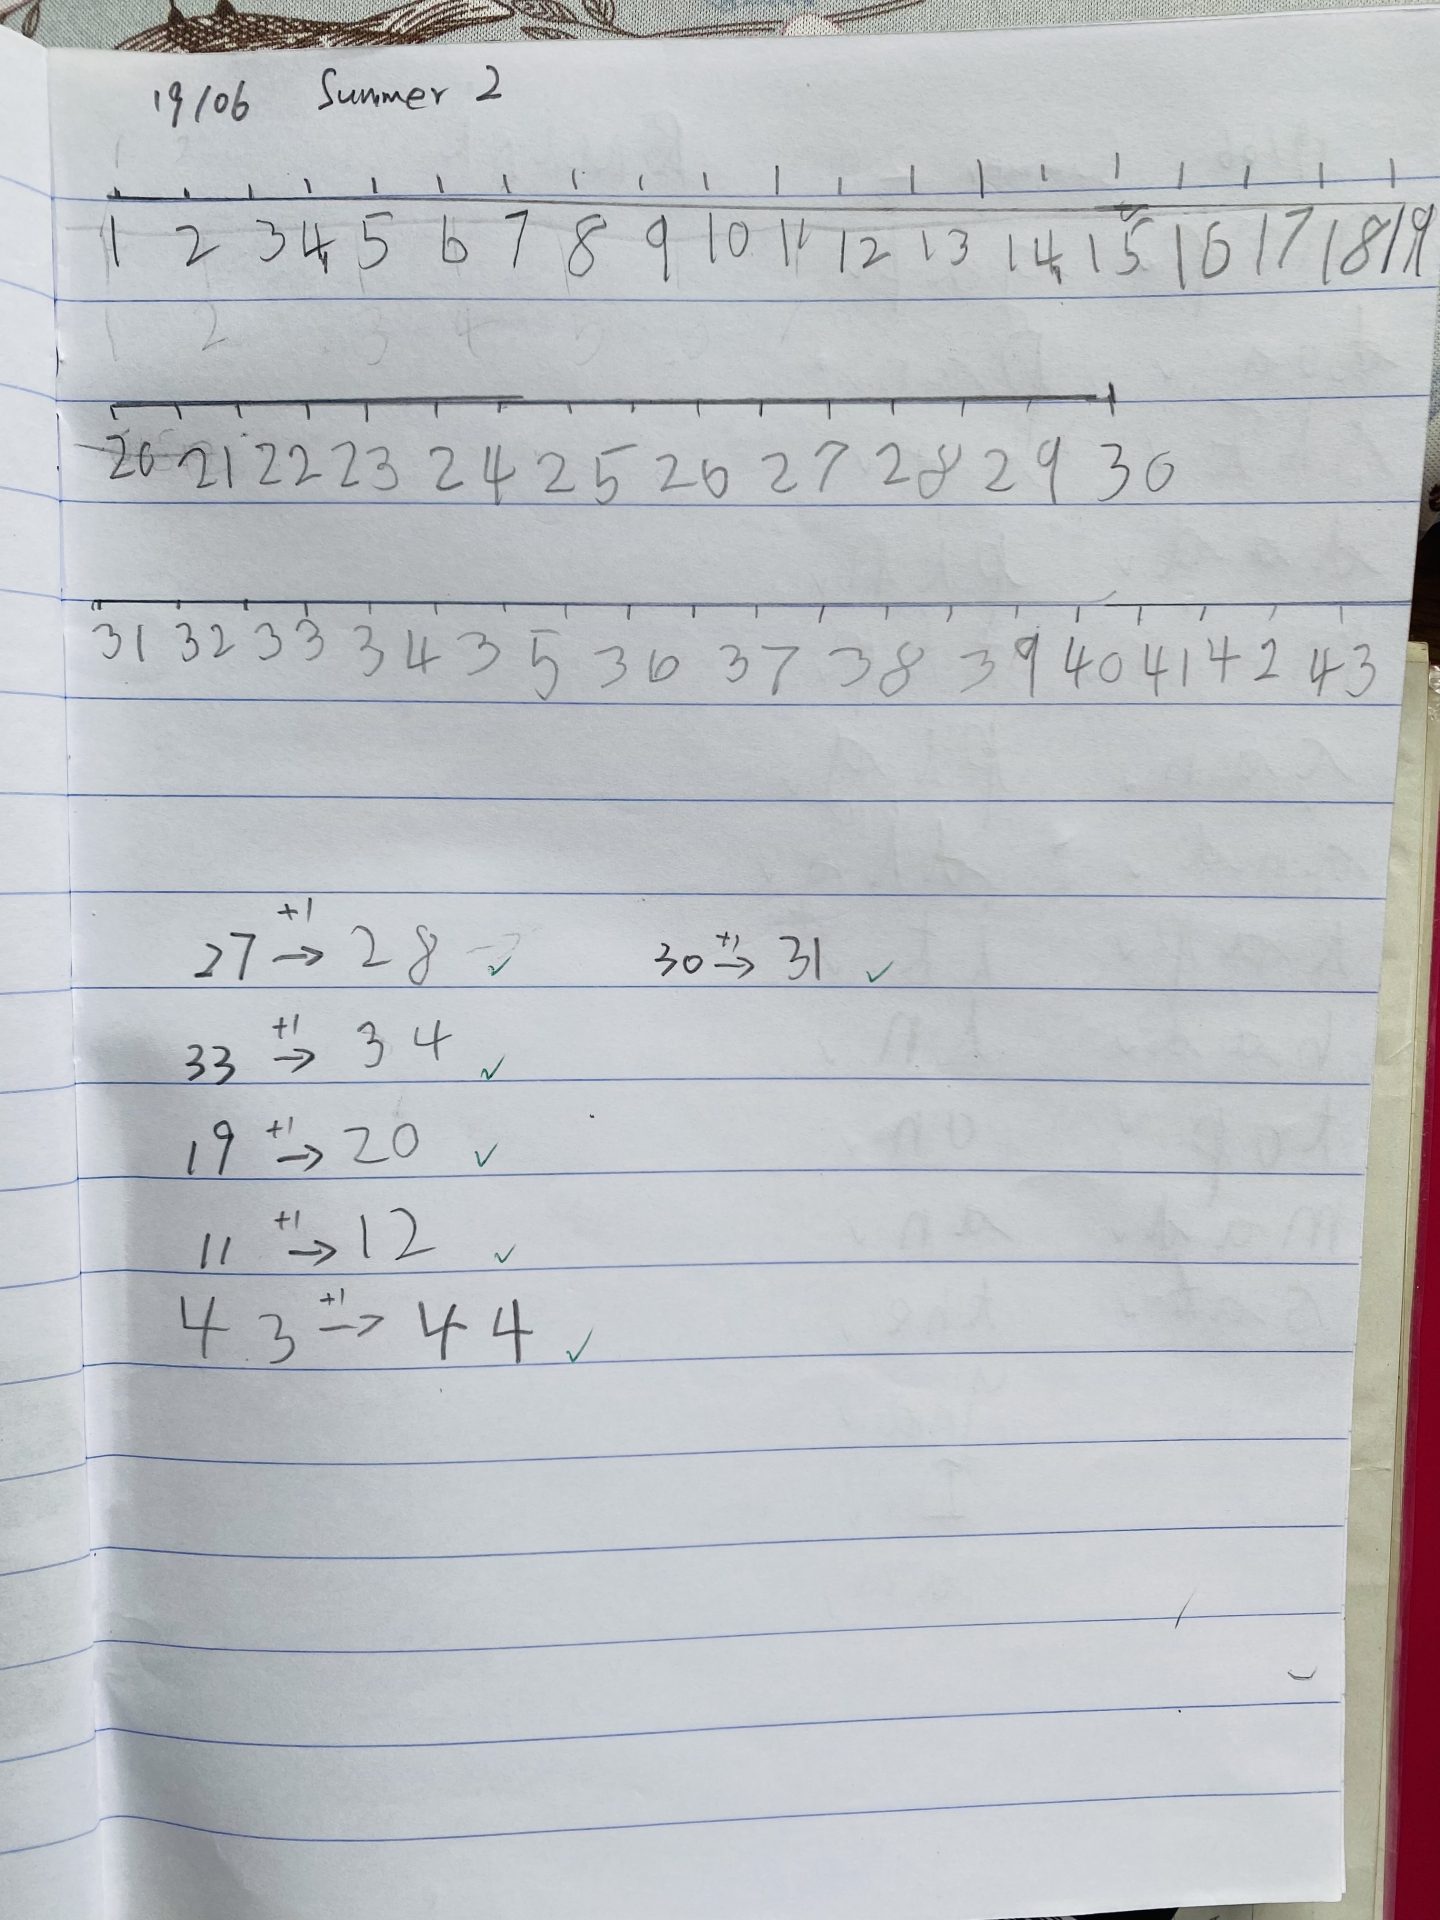 19/06 Summer 2
1 2 3 4 5 6 7 8 9 10 11 12 13 14 15 16 17 18 19
20 21 22 23 24 25 26 27 28 29 30
31 32 33 34 35 36 37 38 39 40 41 42 43
27 +1→ 28 ✓ 30 +1→ 31 ✓
33 +1→ 34 ✓
19 +1→ 20 ✓
11 +1→ 12 ✓
43 +1→ 44 ✓